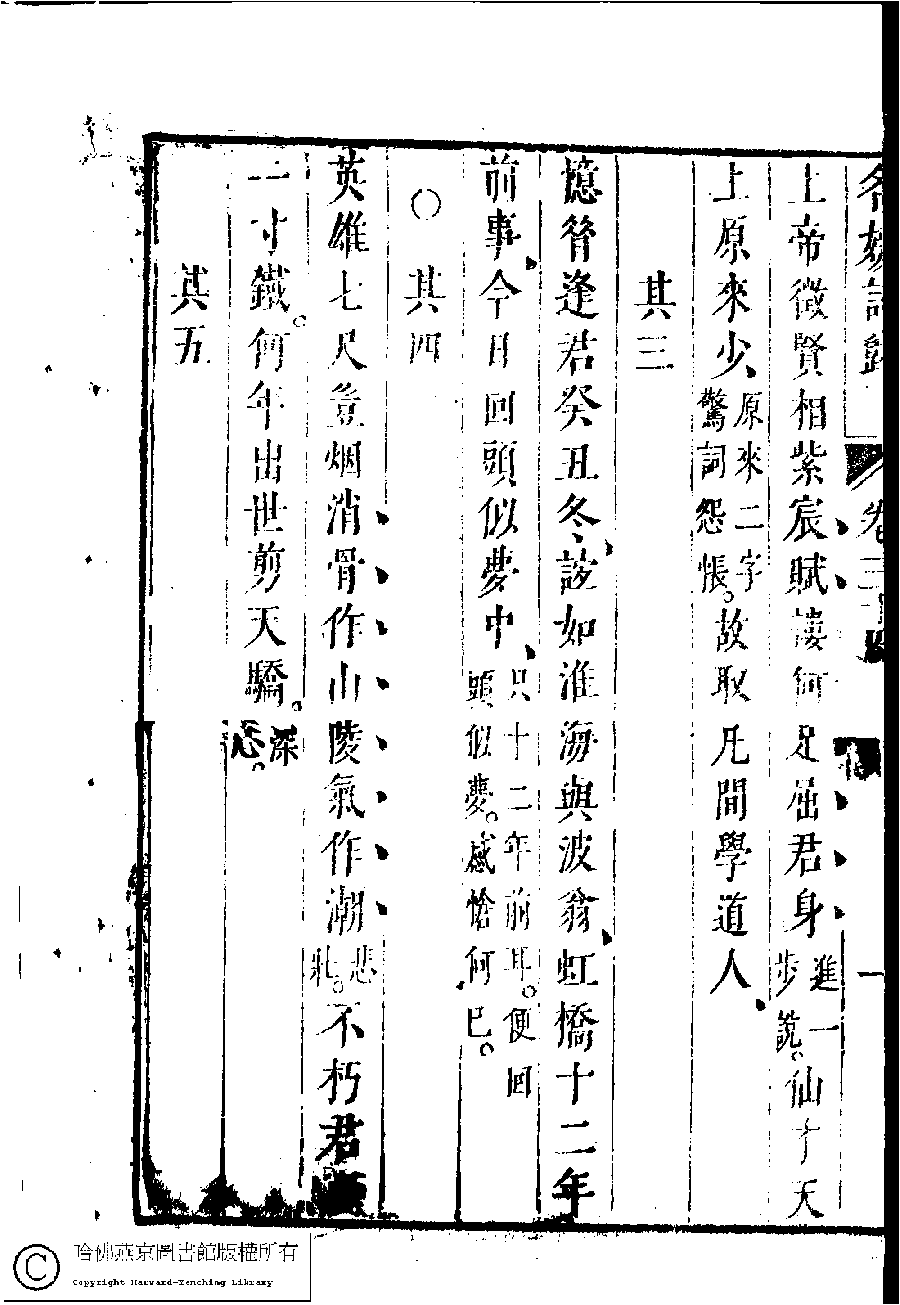 名媛詩歸 卷三十 一
上帝徵賢相紫宸賦樓何足屈君身進一步說。仙才天
上原來少原來二字驚詞怨悵。故取凡間學道人
其三
憶昔逢君癸丑冬誼如淮海與波翁虹橋十二年
前事今日回頭似夢中只十二年前耳。便回頭似夢。感愴何已。
○其四
英雄七尺豈烟消骨作山陵氣作潮悲壯。不朽君
一寸鐵。何年出世剪天驕。深心。
其五
哈佛燕京圖書館版權所有
Copyright Harvard-Yenching Library